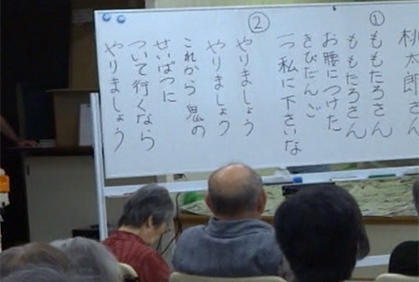 桃太郎さん
①
ももたろさん
ももたろさん
お腰につけた
きびだんご
一つ私に下さいな
②
やりましょう
やりましょう
これから 鬼の
せいばつに
ついて行くなら
やりましょう